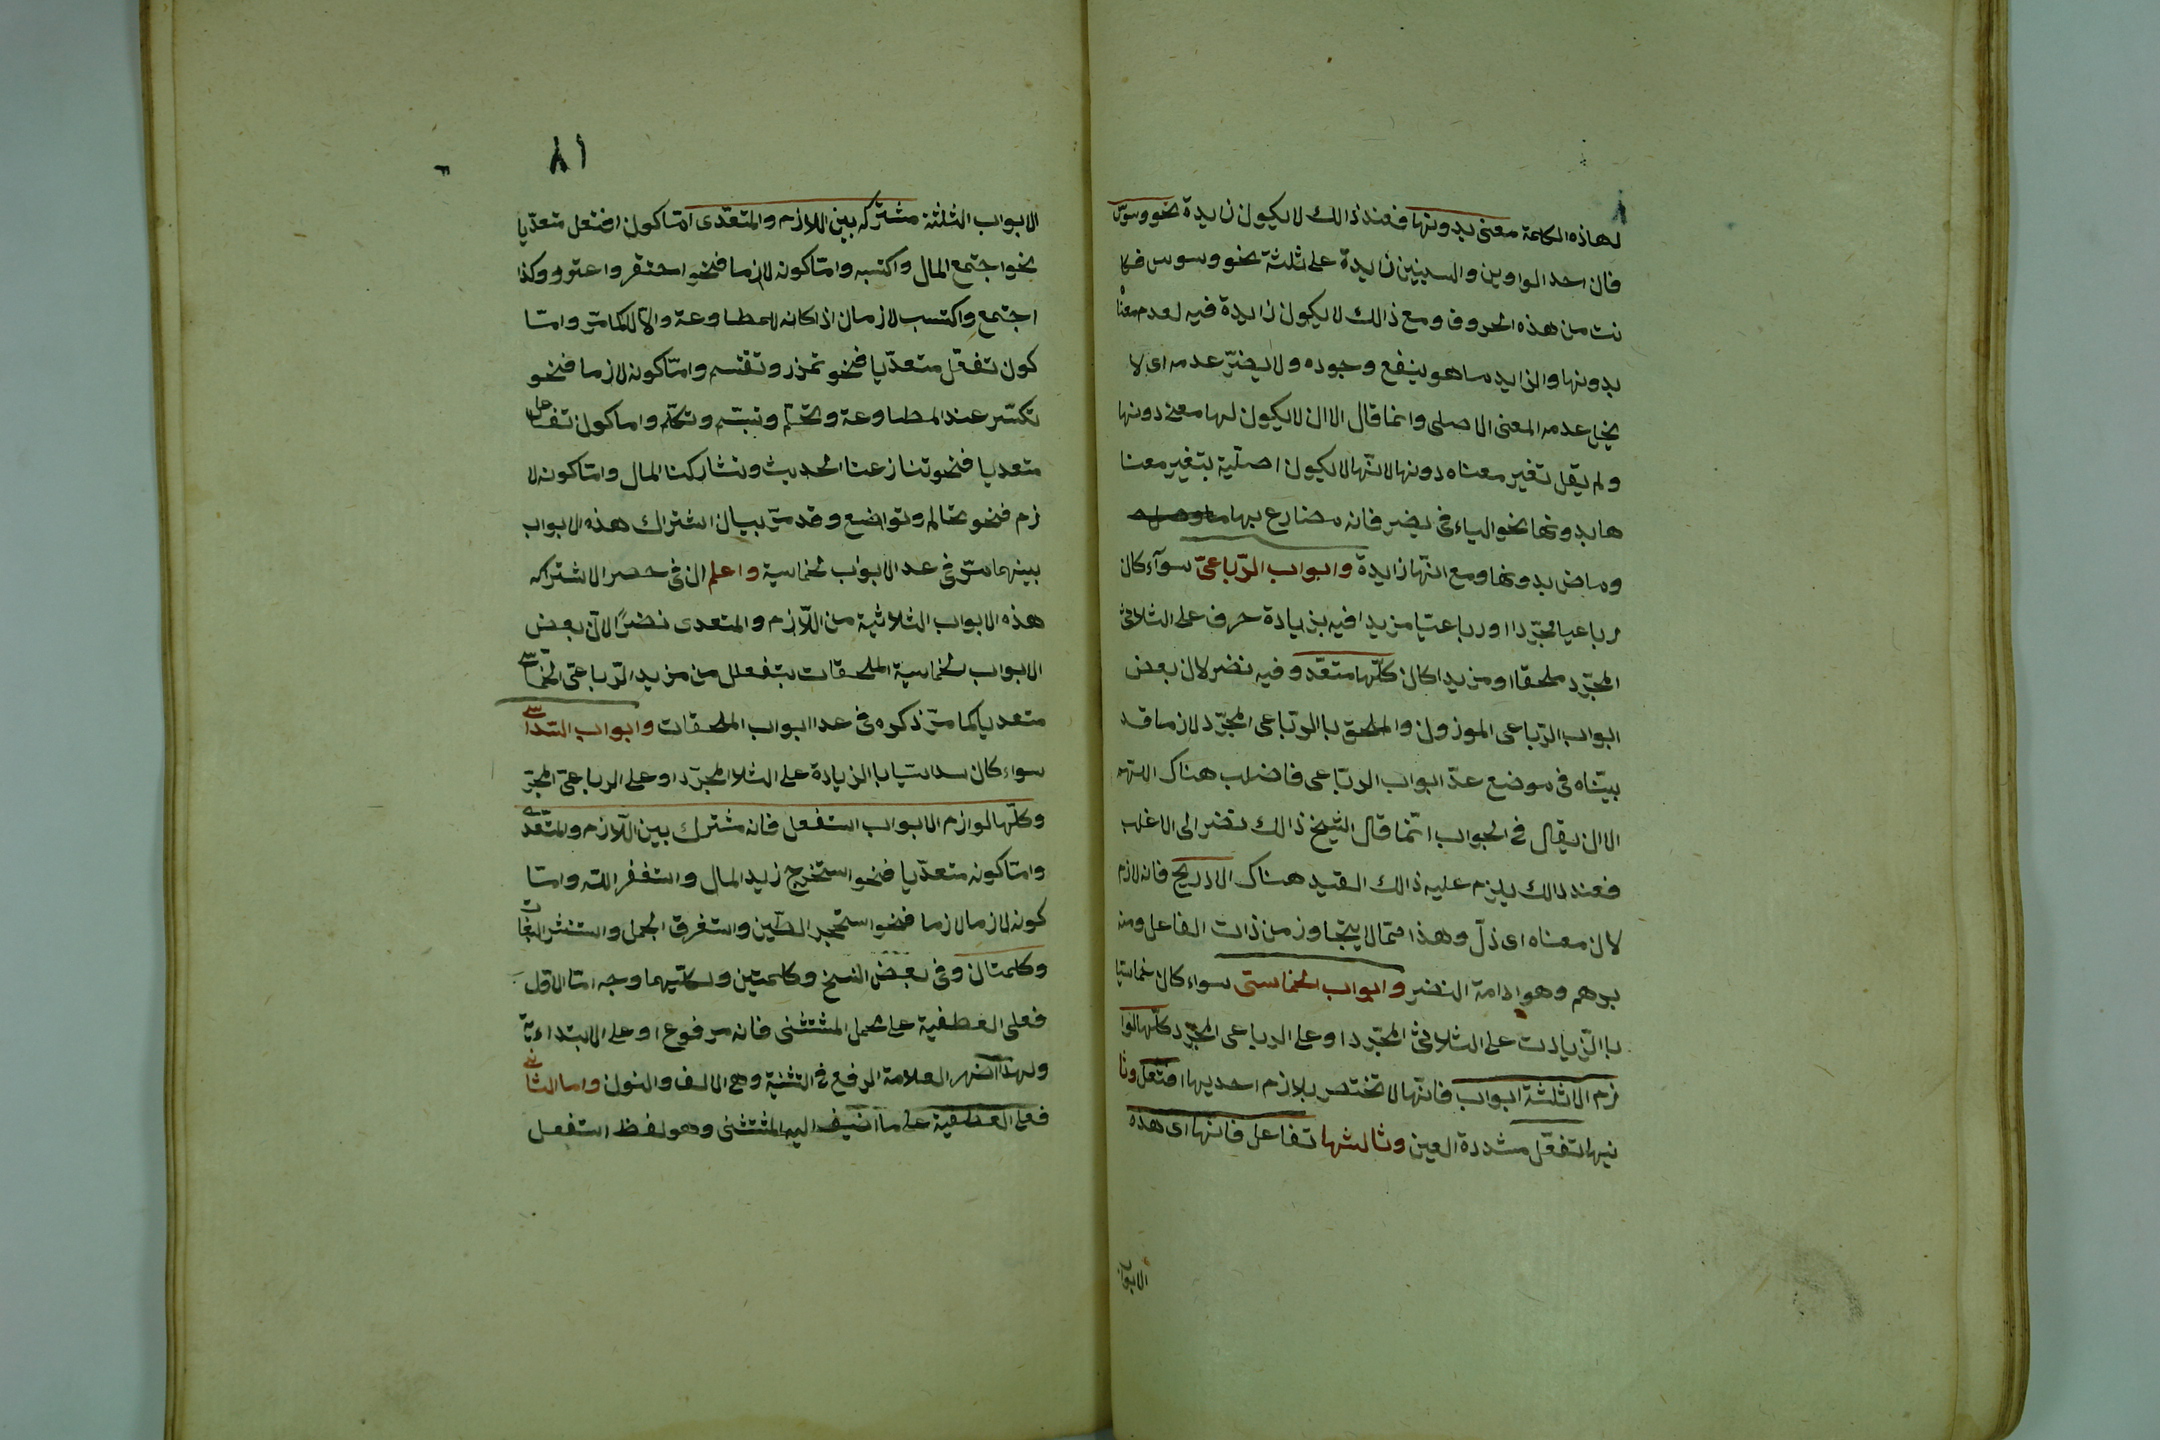 لهاذه الكلمة معنى بدونها فعند ذالك لا يكون زايدة نحو وسوس
فان احد الواوين والسينين زايدة على ثلثة نحو وسوس فكا
نت من هذه الحروف ومع ذالك لا يكون زايدة فيه لعدم معنا
بدونها والزايد ما هو ينفع وجوده ولا يضرّ عدمه اى لا
يخل عدمه المعنى الاصلى وانما قال الا ان لا يكون لها معنى دونها
ولم يقل تغير معناه دونها لانّها لا يكون اصليّة بتغير معنا
ها بدونها نحو الياء فى يضرب فانه مضارع بها
وماض بدونها ومع انّها زايدة وابواب الرّباعىّ سوآء كان
رباعيا مجرّدا او رباعيّا مزيدا فيه بزيادة حرف على الثلاثى
المجرّد ملحقا او مزيدا كان كلّها متعدّ وفيه نضر لان بعض
ابواب الرّباعى الموزون والملحق باالرّباعى المجرّد لازما قد
بيّناه فى موضع عدّ ابواب الرّباعى فاضلب هناك
الا ان يقال فى الجواب انّما قال الشيخ ذالك نضر الى الاغلب
فعند ذالك يلزم عليه ذالك القيد هناك الا دربح فانه لازم
لان معناه اى ذلّ وهذا ممّا لا يتجاوز من ذات الفاعل ومنه
برهم وهو ادامة النضر وابواب الخماسىّ سواء كان خماسيّا
باالزيادت على الثلاثى المجرّد او على الرباعى المجرّد كلّها لوا
زم الا ثلثة ابواب فانّها لا تختصر بلازم احديها افتعل وثا
نيها تفعّل مشددة العين وثالثها تفاعل فانها اى هذه
الابواب
٨١
الابواب الثلثة مشتركه بين اللازم والمتعدّى امّا كون افتعل متعدّيا
نحو اجتمع المال واكتسبه وامّا كونه لازما فنحو احتقر واعترو وكذا
اجتمع واكتسب لازمان اذا كانا للمطاوعة والا لكما مرّ وامّا
كون تفعّل متعدّيا فنحو تمذر وتقسم وامّا كونه لازما فنحو
تكسّر عند المطاوعة وتحلّم وتبسّم وتكلّم واما كون تفاعل
متعديا فنحو تنازعنا الحديث وتشاركنا المال وامّا كونه لا
زم فنحو تخالم وتواضع وقد مرّ بيان اشتراك هذه الابواب
بينهما مرّ فى عد الابواب لخماسية واعلم ان فى حصر الاشتراكه
هذه الابواب الثلاثية من اللّازم والمتعدى نضرًا لانّ بعض
الابواب لخماسية الملحقات بتفعلل من مزيد الرّباعىّ الخماسىّ
متعديا كما مرّ ذكره فى عدا ابواب الملحقات وابواب السّداسى
سواء كان سداسيّا باالزيادة على الثلا المجرّد او على الرباعىّ المجرّ
وكلّها لوازم الا بواب استفعل فانه مشترك بين اللّازم والمتعّدى
وامّا كونه متعدّيا فنحو استخرج زيد المال واستغفر اللّه وامّا
كونه لازما لازما فنحو استحجر الطّين واستغرق الجمل واستنثر البغات
وكلمتان وفى بعض النسخ وكلمتين ولكلّيهما وجه امّا الاوّل
فعلى العطفية على محمل المشتثنى فانه مرفوع او على الابتداءيّة
ولهذا اضهر العلامة الرفع فى التثنية وهى الالف والنون واما الثانى
فعلى العطفية على ما اضيف اليه المشتثنى وهو لفظ استفعل